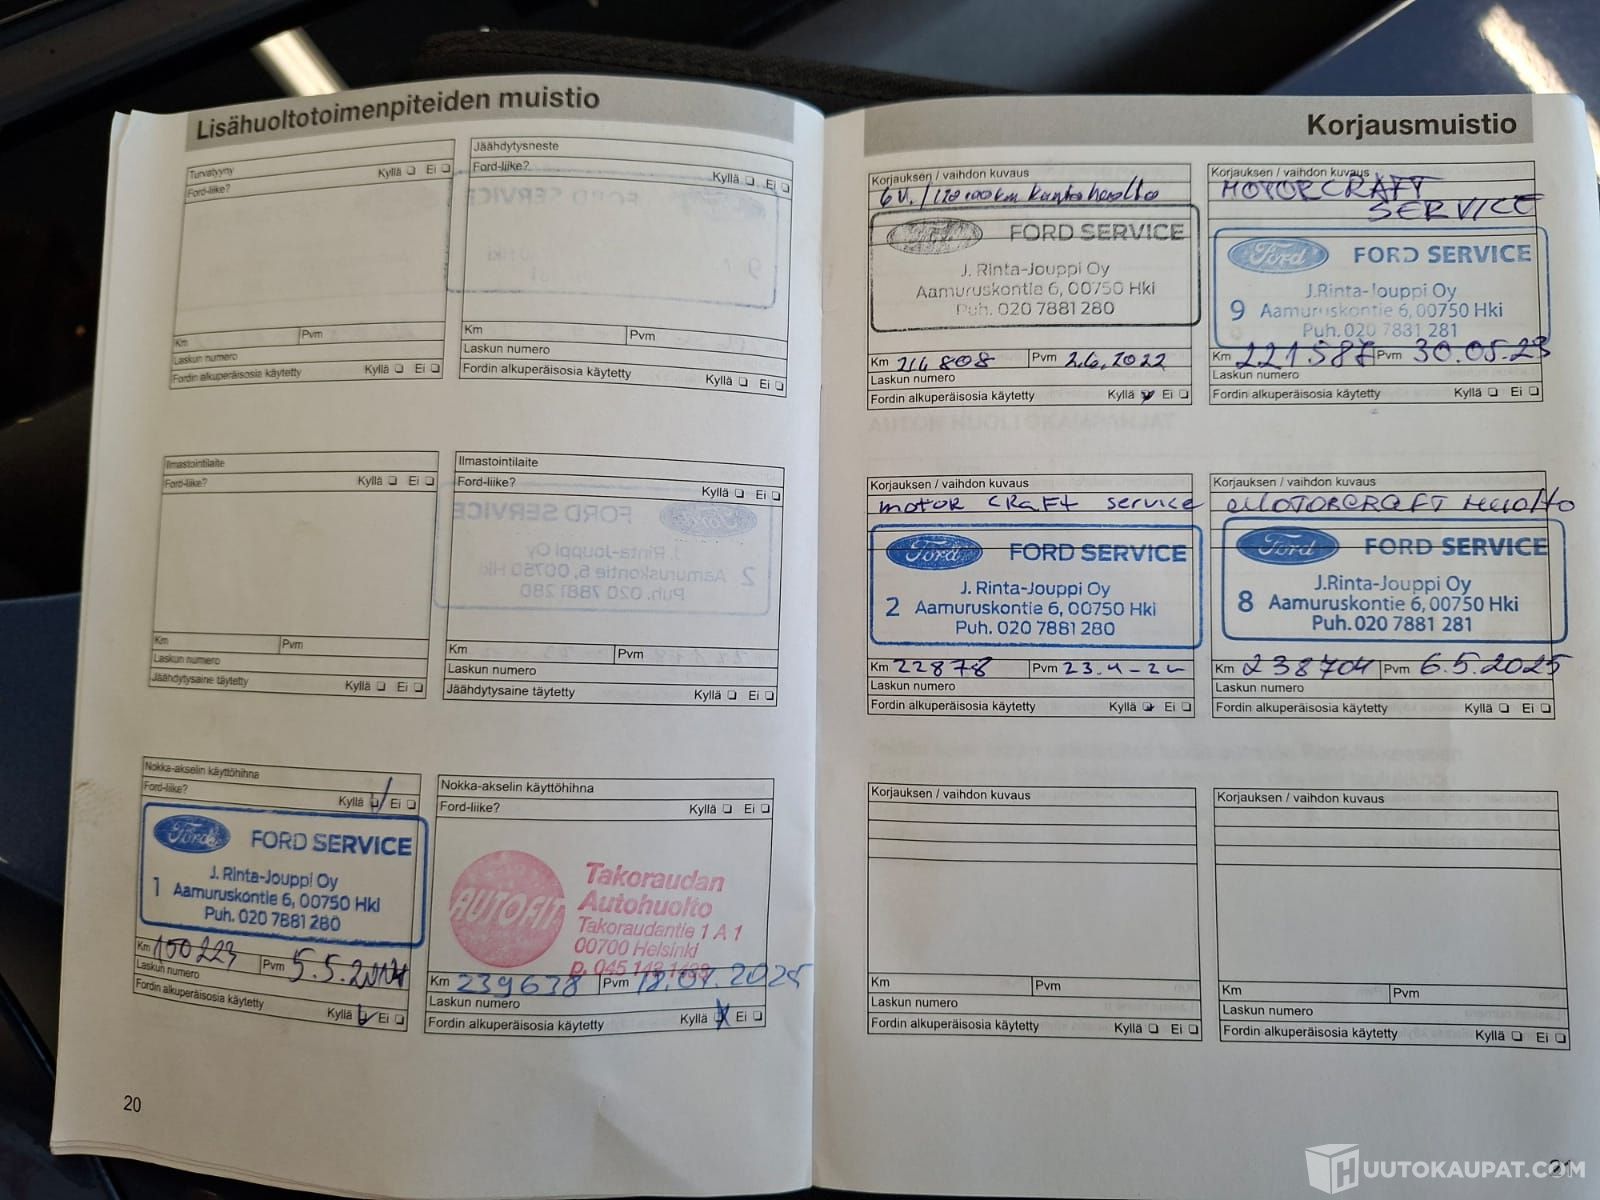 Lisähuoltotoimenpiteiden muistio
Turvatyyny
Ford-liike?
Kyllä ❏ Ei ❏
Km
Pvm
Laskun numero
Fordin alkuperäisosia käytetty
Kyllä ❏ Ei ❏
Jäähdytysneste
Ford-liike?
Kyllä ❏ Ei ❏
Km
Pvm
Laskun numero
Fordin alkuperäisosia käytetty
Kyllä ❏ Ei ❏
Ilmastointilaite
Ford-liike?
Kyllä ❏ Ei ❏
Km
Pvm
Laskun numero
Jäähdytysaine täytetty
Kyllä ❏ Ei ❏
Ilmastointilaite
Ford-liike?
Kyllä ❏ Ei ❏
Km
Pvm
Laskun numero
Jäähdytysaine täytetty
Kyllä ❏ Ei ❏
Nokka-akselin käyttöhihna
Ford-liike?
Kyllä ❏ Ei ❏
Ford FORD SERVICE
J. Rinta-Jouppi Oy
1 Aamuruskontie 6, 00750 Hki
Puh. 020 7881 280
Km 150223
Pvm 5.5.
Laskun numero
Fordin alkuperäisosia käytetty
Kyllä ❏ Ei ❏
Nokka-akselin käyttöhihna
Ford-liike?
Kyllä ❏ Ei ❏
AUTOFIT
Takoraudan
Autohuolto
Takoraudantie 1 A 1
00700 Helsinki
p. 045 143
Km 239638
Pvm 18.07.2025
Laskun numero
Fordin alkuperäisosia käytetty
Kyllä ❏ Ei ❏
20
Korjausmuistio
Korjauksen / vaihdon kuvaus
6 v. / 120 000km kuntohuolto
Ford FORD SERVICE
J. Rinta-Jouppi Oy
Aamuruskontie 6, 00750 Hki
Puh. 020 7881 280
Km 214808
Pvm 2.6.2022
Laskun numero
Fordin alkuperäisosia käytetty
Kyllä ❏ Ei ❏
Korjauksen / vaihdon kuvaus
MOTORCRAFT
SERVICE
Ford FORD SERVICE
J.Rinta-Jouppi Oy
9 Aamuruskontie 6, 00750 Hki
Puh. 020 7881 281
Km 221587
Pvm 30.05.23
Laskun numero
Fordin alkuperäisosia käytetty
Kyllä ❏ Ei ❏
Korjauksen / vaihdon kuvaus
motor CRaFt service
Ford FORD SERVICE
J. Rinta-Jouppi Oy
2 Aamuruskontie 6, 00750 Hki
Puh. 020 7881 280
Km 22878
Pvm 23.4-24
Laskun numero
Fordin alkuperäisosia käytetty
Kyllä ❏ Ei ❏
Korjauksen / vaihdon kuvaus
MOTORCRAFT Huolto
Ford FORD SERVICE
J.Rinta-Jouppi Oy
8 Aamuruskontie 6, 00750 Hki
Puh. 020 7881 281
Km 238704
Pvm 6.5.2025
Laskun numero
Fordin alkuperäisosia käytetty
Kyllä ❏ Ei ❏
Korjauksen / vaihdon kuvaus
Km
Pvm
Laskun numero
Fordin alkuperäisosia käytetty
Kyllä ❏ Ei ❏
Korjauksen / vaihdon kuvaus
Km
Pvm
Laskun numero
Fordin alkuperäisosia käytetty
Kyllä ❏ Ei ❏
HUUTOKAUPAT.COM